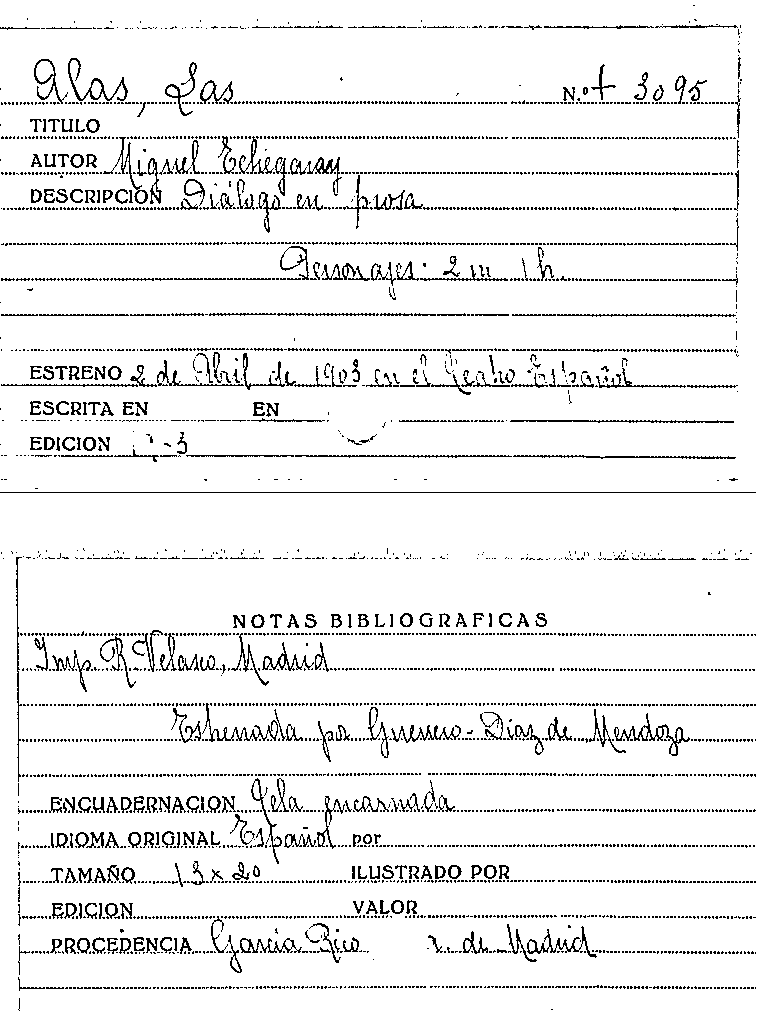 Alas, Las N.º t 3095
TITULO
AUTOR Miguel Echegaray
DESCRIPCIÓN Diálogo en prosa
Personajes: 2 m 1 h.
ESTRENO 2 de Abril de 1903 en el Teatro Español
ESCRITA EN EN
EDICION -3
NOTAS BIBLIOGRAFICAS
Imp. R. Velasco, Madrid
Estrenada por Guerrero-Díaz de Mendoza
ENCUADERNACION Tela encarnada
IDIOMA ORIGINAL Español por
TAMAÑO 13 x 20 ILUSTRADO POR
EDICION VALOR
PROCEDENCIA García Rico de Madrid